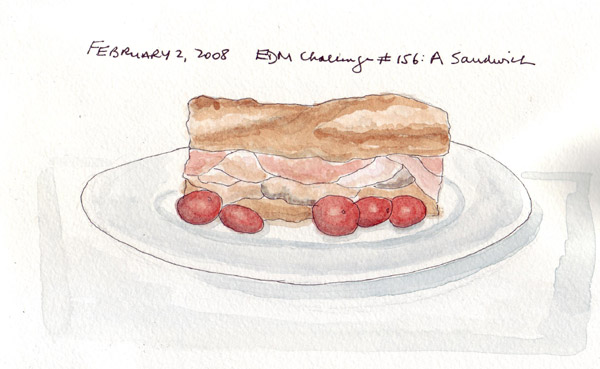 FEBRUARY 2, 2008 EDM Challenge #156: A Sandwich